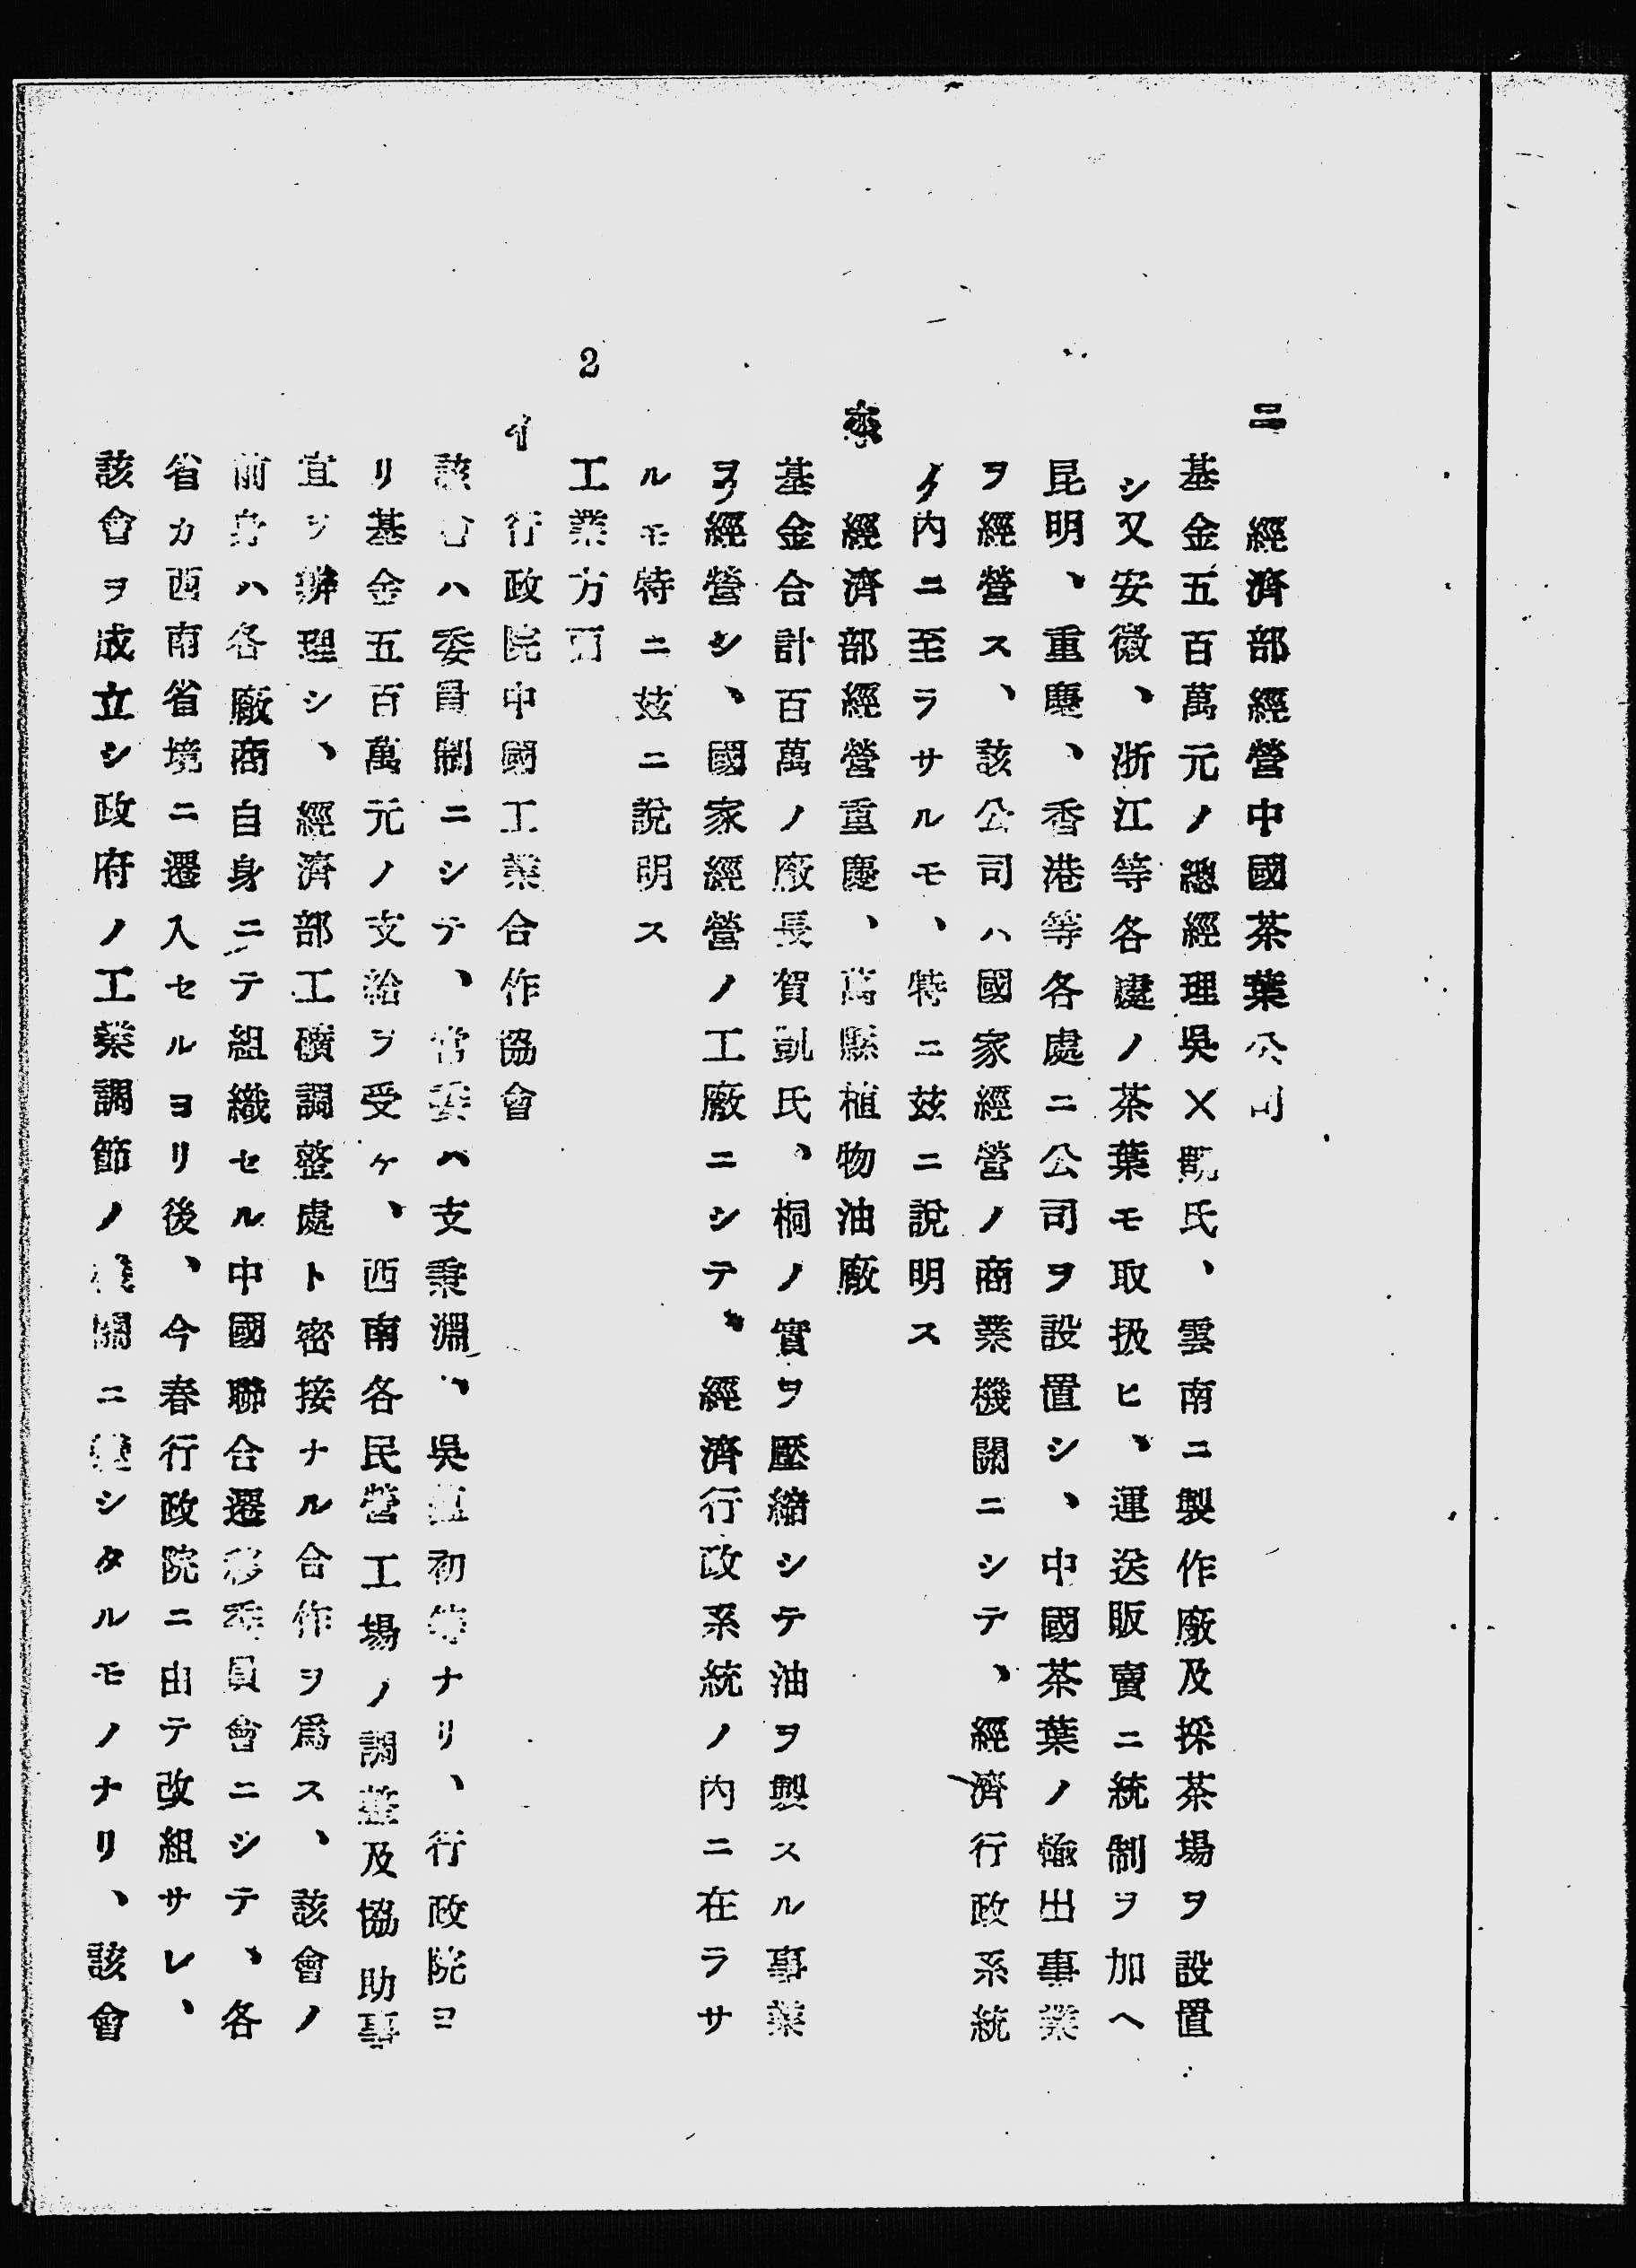 ニ 經濟部經營中國茶葉公司
基金五百萬元ノ總經理吳×覬氏、雲南ニ製作廠及採茶場ヲ設置
シ又安徽、浙江等各處ノ茶葉モ取扱ヒ、運送販賣ニ統制ヲ加ヘ
昆明、重慶、香港等各處ニ公司ヲ設置シ、中國茶葉ノ輸出事業
ヲ經營ス、該公司ハ國家經營ノ商業機關ニシテ、經濟行政系統
ノ內ニ至ラサルモ、特ニ玆ニ說明ス
ホ 經濟部經營重慶、萬縣植物油廠
基金合計百萬ノ廠長賀凱氏、桐ノ實ヲ壓縮シテ油ヲ製スル事業
ヲ經營シ、國家經營ノ工廠ニシテ、經濟行政系統ノ內ニ在ラサ
ルモ特ニ玆ニ說明ス
2 工業方面
イ 行政院中國工業合作協會
該會ハ委員制ニシテ、常委ハ支秉淵、吳蘊初等ナリ、行政院ヨ
リ基金五百萬元ノ支給ヲ受ケ、西南各民營工場ノ調整及協助事
宜ヲ辦理シ、經濟部工礦調整處ト密接ナル合作ヲ爲ス、該會ノ
前身ハ各廠商自身ニテ組織セル中國聯合遷移委員會ニシテ、各
省カ西南省境ニ遷入セルヨリ後、今春行政院ニ由テ改組サレ、
該會ヲ成立シ政府ノ工業調節ノ機關ニ變シタルモノナリ、該會